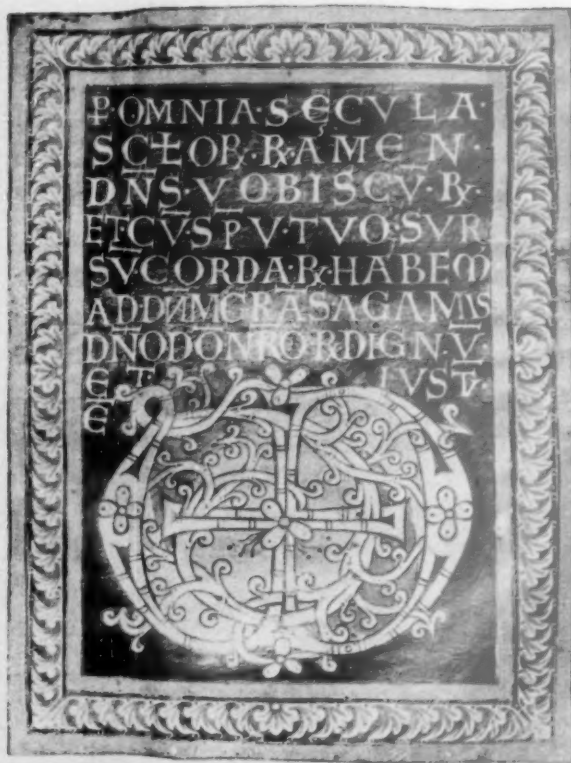 P̶·OMNIA·SĘCVLA·
SCŁOR̶·R̶·AMEN·
DN̄S·VOBISCV̄·R̶·
ET·CV̄·SPV̄·TVO·SVR
SV̄CORDA·R̶·HABEM̄
ADDN̄MGRĀSAGAMVS
DN̄ODŌNR̄O·R̶·DIGN·V̄·
ET· IVST̄V·
E